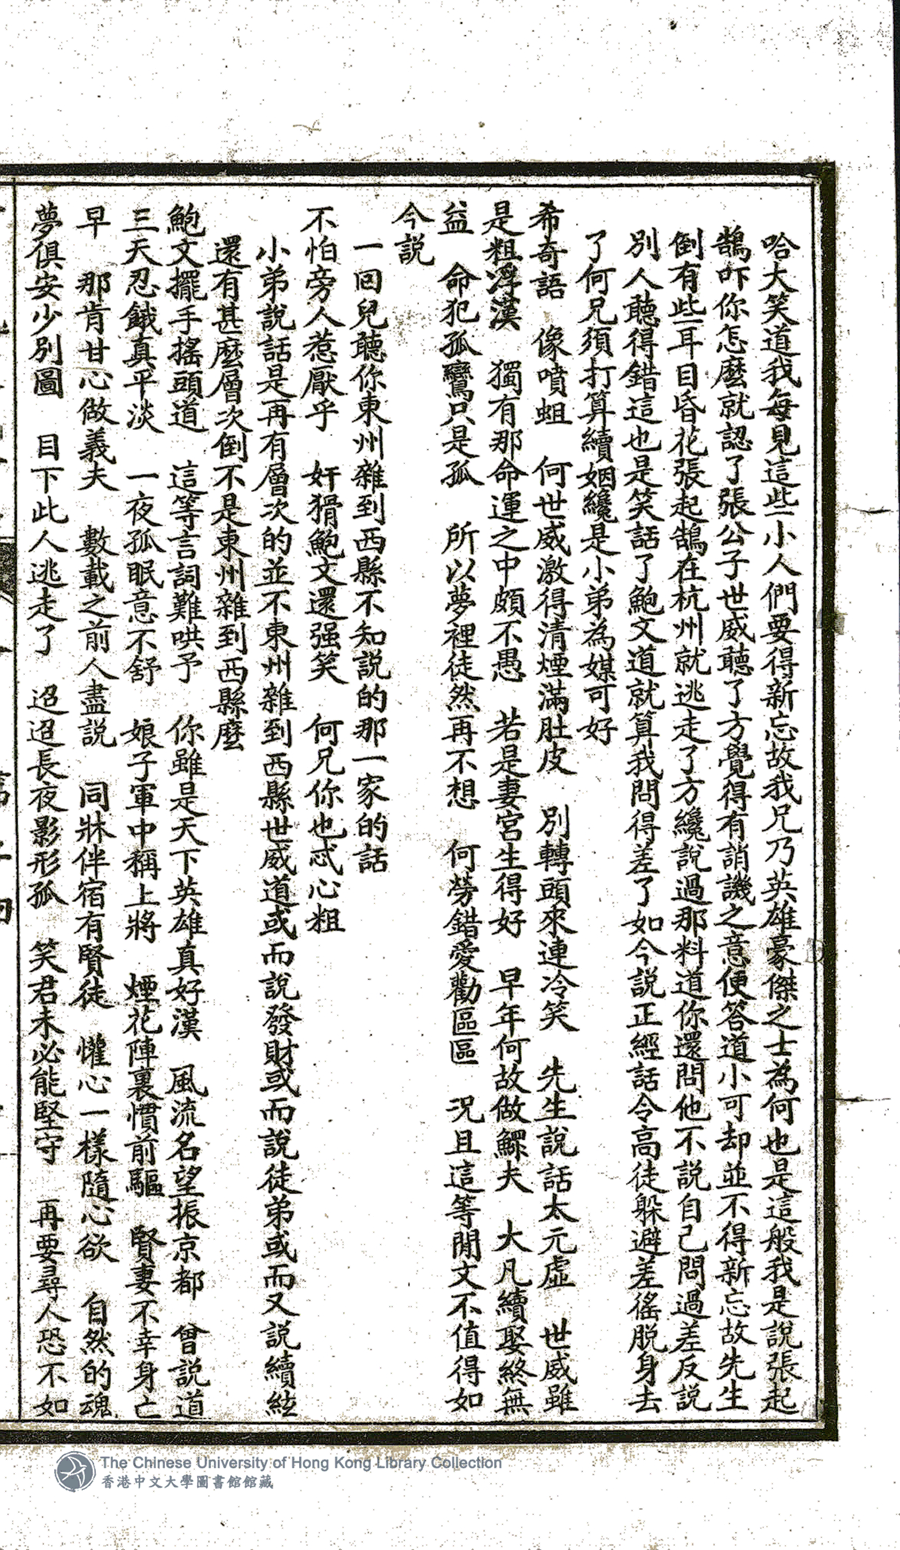 哈大笑道我每見這些小人們要得新忘故我兄乃英雄豪傑之士為何也是這般我是説張起
鵠吓你怎麽就認了張公子世威聽了方覺得有誚譏之意便答道小可却並不得新忘故先生
倒有些耳目昏花張起鵠在杭州就逃走了方纔説過那料道你還問他不説自己問過差反説
別人聽得錯這也是笑話了鮑文道就算我問得差了如今説正經話令高徒躲避差徭脱身去
了何兄須打算續姻纔是小弟為媒可好
希奇語　像噴蛆　何世威激得清煙滿肚皮　別轉頭來連冷笑　先生説話太元虛　世威雖
是粗浮漢　獨有那命運之中頗不愚　若是妻宮生得好　早年何故做鰥夫　大凡續娶終無
益　命犯孤鸞只是孤　所以夢裡徒然再不想　何勞錯愛勸區區　况且這等閒文不值得如
今説
一回兒聽你東州雜到西縣不知説的那一家的話
不怕旁人惹厭乎　奸猾鮑文還强笑　何兄你也忒心粗
小弟説話是再有層次的並不東州雜到西縣世威道或而說發財或而說徒弟或而又説續絃
還有甚麽層次倒不是東州雜到西縣麽
鮑文擺手搖頭道　這等言詞難哄予　你雖是天下英雄真好漢　風流名望振京都　曾説道
三天忍餓真平淡　一夜孤眠意不舒　娘子軍中稱上將　煙花陣裏慣前驅　賢妻不幸身亡
早　那肯甘心做義夫　數載之前人盡説　同牀伴宿有賢徒　懽心一樣隨心欲　自然的魂
夢俱安少別圖　目下此人逃走了　迢迢長夜影形孤　笑君未必能堅守　再要尋人恐不如
The Chinese University of Hong Kong Library Collection
香港中文大學圖書館館藏